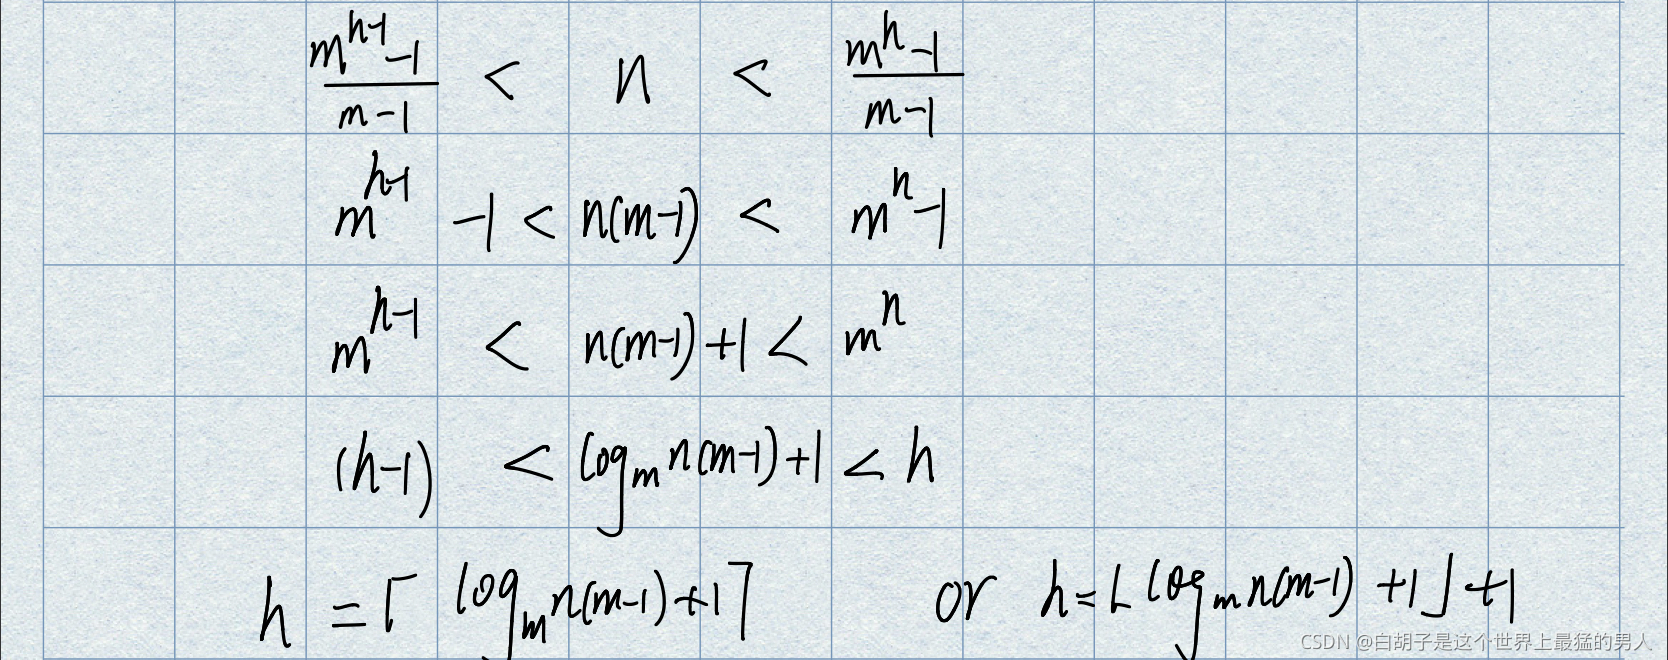 \frac{m^{h-1}-1}{m-1} < n < \frac{m^{h}-1}{m-1}
m^{h-1} -1 < n(m-1) < m^{h}-1
m^{h-1} < n(m-1)+1 < m^{h}
(h-1) < log_m n(m-1)+1 < h
h = ⌈ log_m n(m-1)+1 ⌉ or h = ⌊ log_m n(m-1) +1 ⌋ +1
CSDN @白胡子是这个世界上最猛的男人